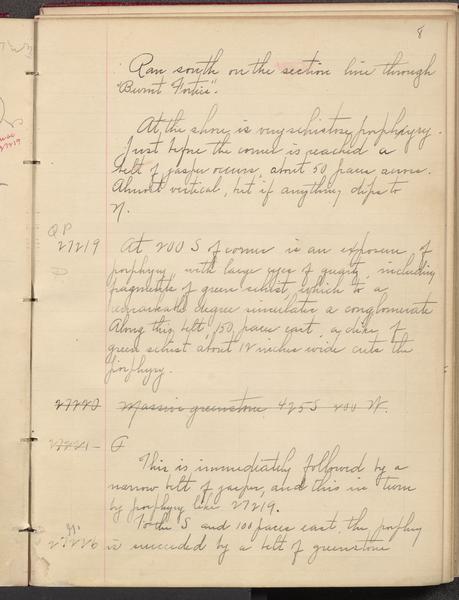 8
Ran south on the section line through
"Burnt Forties".
At the shore is very schistose porphyry.
Just before the corner is reached a
belt of jasper occurs, about 50 paces across.
Almost vertical, but if anything, dips to
N.
QP
27219 At 200 S of corner is an exposure of
porphyry, with large eyes of quartz, including
fragments of green schist, which to a
remarkable degree simulates a conglomerate
Along this belt, 150 paces east, a dike of
green schist about 12 inches wide cuts the
porphyry.
27220 Massive greenstone, 425 S 200 W.
27221 -
This is immediately followed by a
narrow belt of jasper, and this in turn
by porphyry like 27219.
To the S and 100 paces east, the porphyry
is succeeded by a belt of greenstone
27219